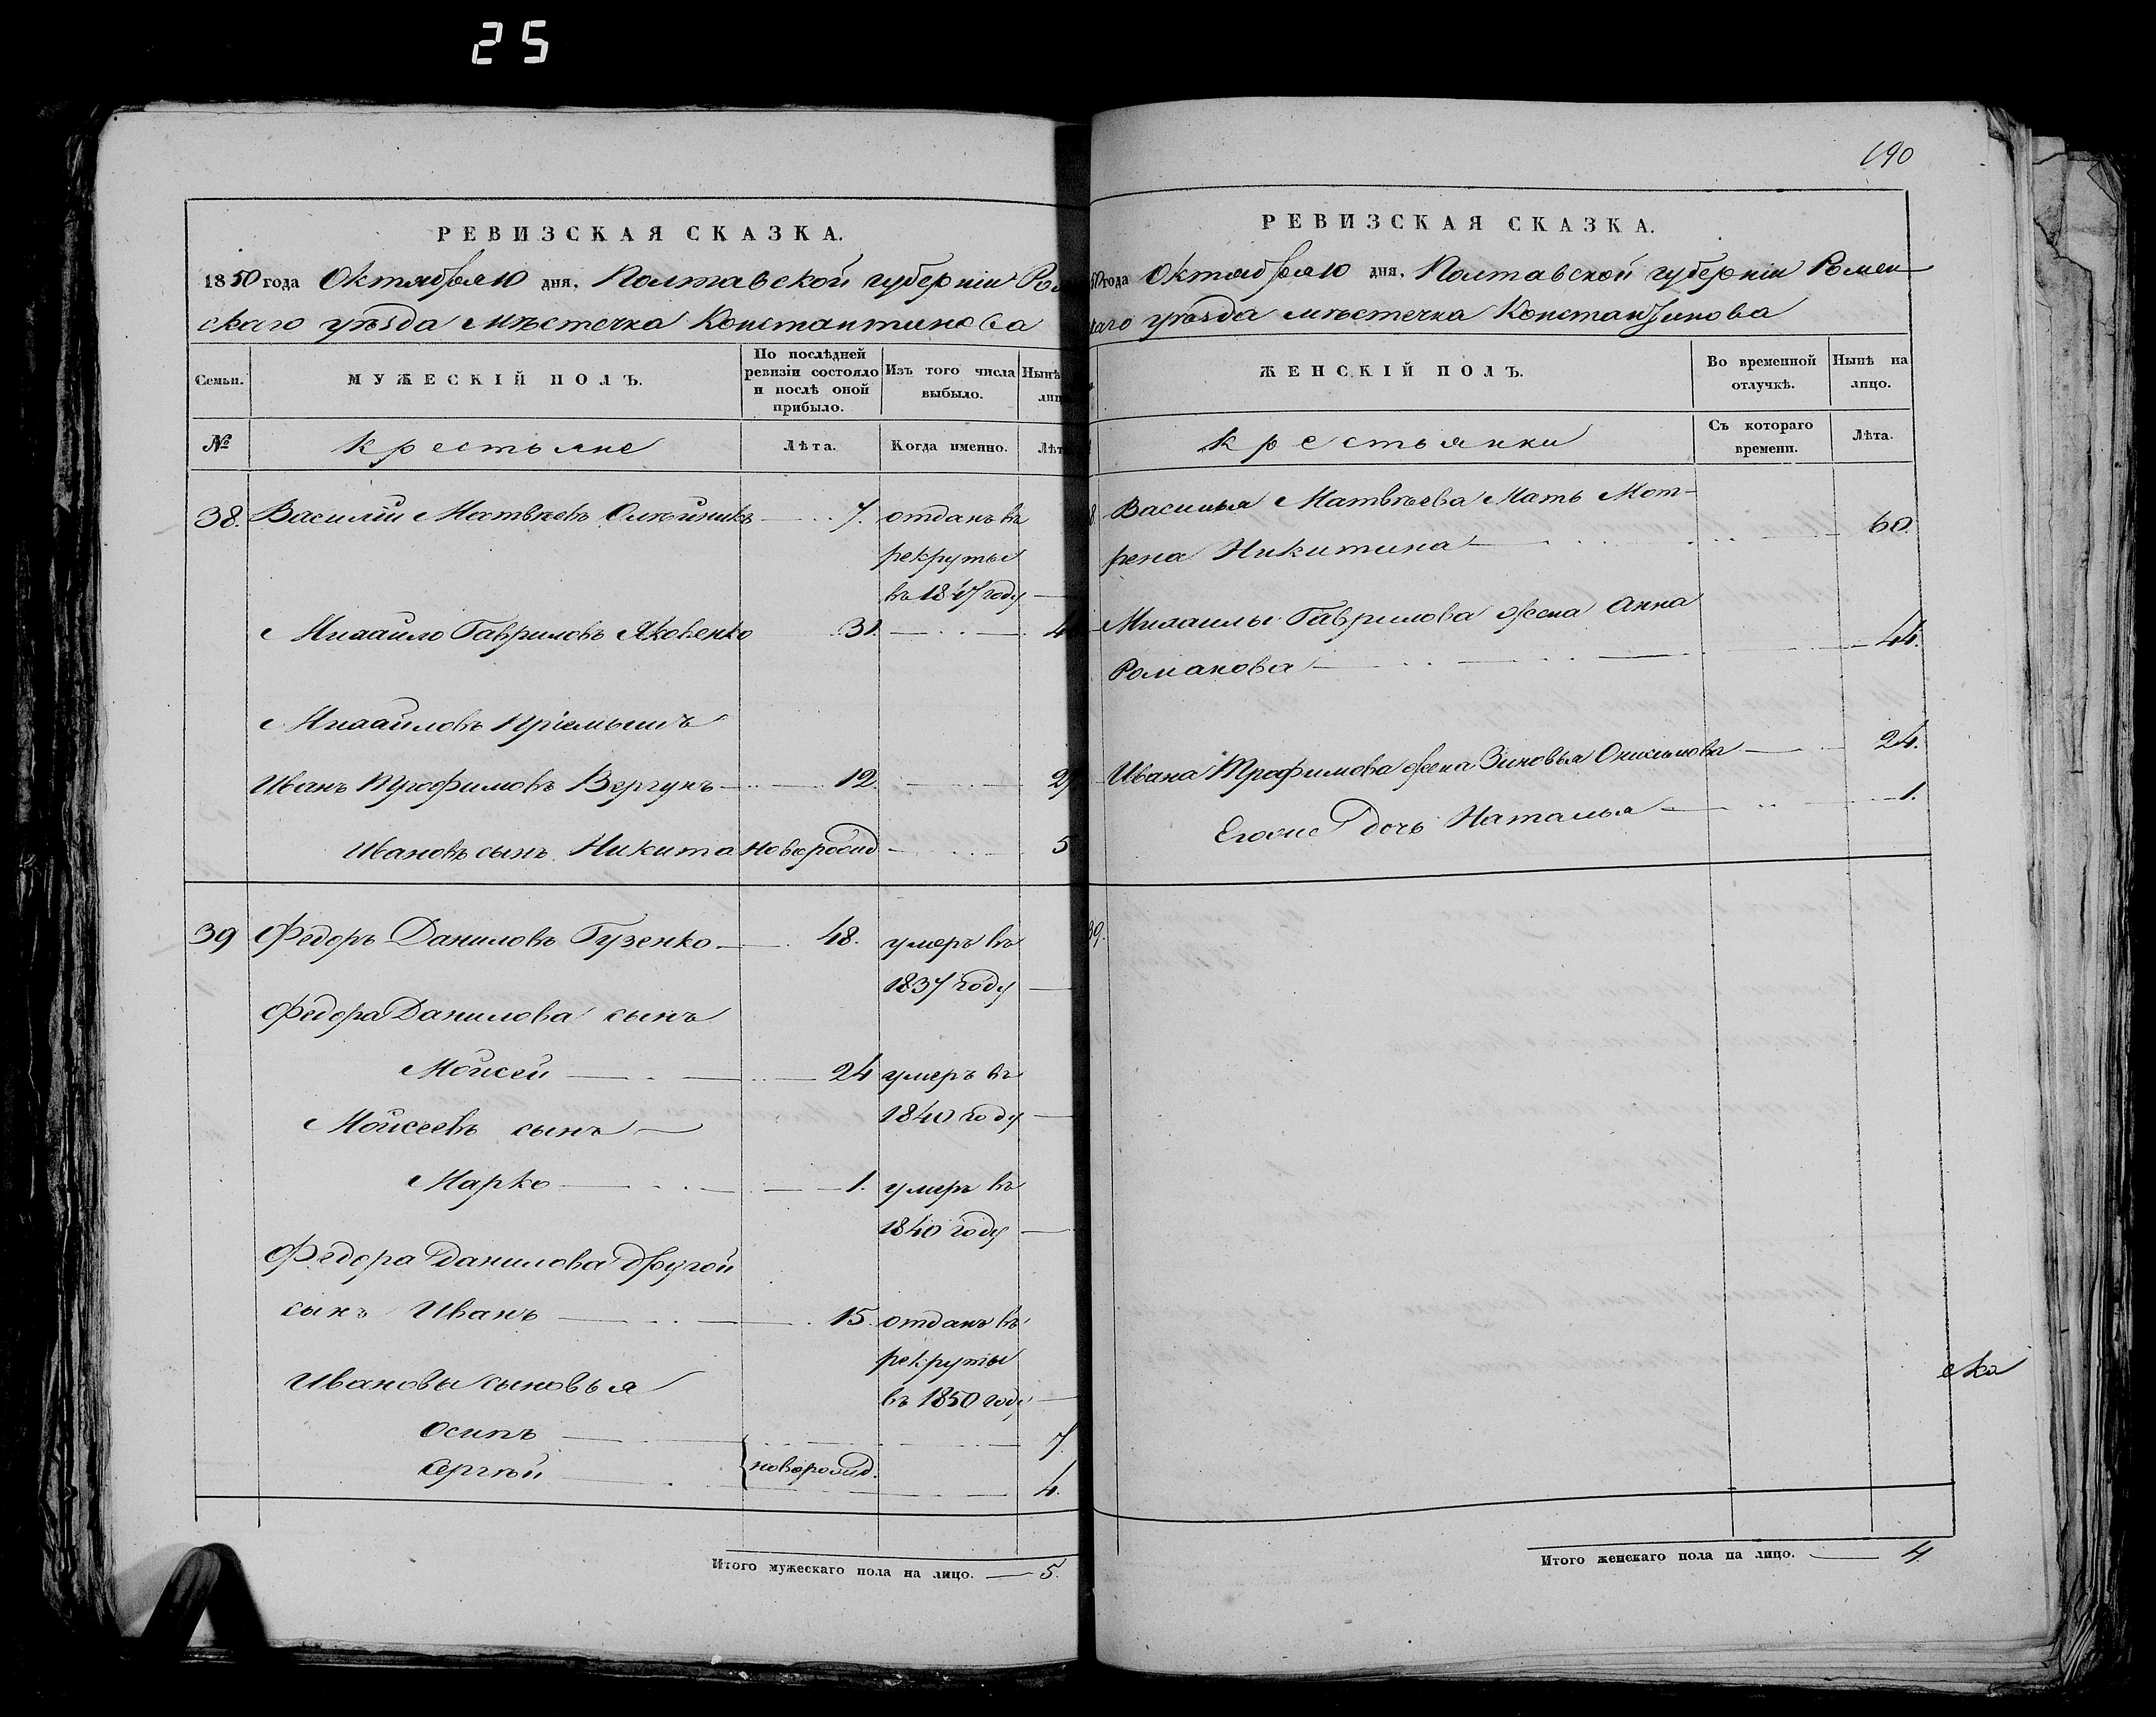 25
РЕВИЗСКАЯ СКАЗКА.
1850 года Октября 10 дня, Полтавской губерніи
скаго уѣзда мѣстечка Константинова
Семьи.
МУЖЕСКІЙ ПОЛЪ.
По послѣдней ревизіи состояло и послѣ оной прибыло.
Изъ того числа выбыло.
Нынѣ
№
крестьяне
Лѣта.
Когда именно.
38. Василій Матвѣевъ Олѣйникъ 7. отданъ въ
рекруты
въ 1847 году
Михайло Гавриловъ Яковенко 31.
Михайловъ Пріемышъ
Иванъ Трофимовъ Вергунъ 12.
Ивановъ сынъ Никита новорожд 5
39 Федоръ Даниловъ Гузенко 48. умеръ въ
1837 году
Федора Данилова сынъ
Моисей 24 умеръ въ
1840 году
Моисеевъ сынъ
Марко 1. умеръ въ
1840 году
Федора Данилова другой
сынъ Иванъ 15. отданъ въ
рекруты
въ 1850 году
Ивановы сыновья
Осипъ 7.
новорожд.
Сергѣй 4.
Итого мужескаго пола на лицо. 5.
190
РЕВИЗСКАЯ СКАЗКА.
50 года Октября 10 дня, Полтавской губерніи Ромен
уѣзда мѣстечка Константинова
ЖЕНСКІЙ ПОЛЪ.
Во временной отлучкѣ.
Нынѣ на лицо.
крестьянки
Съ котораго времени.
Лѣта.
8. Василья Матвѣева Мать Мот-
рена Никитина 60.
Михаилы Гаврилова жена Анна
Романова 44.
Ивана Трофимова жена Зиновья Онисимова 24.
Егоже дочь Наталья 1.
39.
ска
Итого женскаго пола на лицо. 4